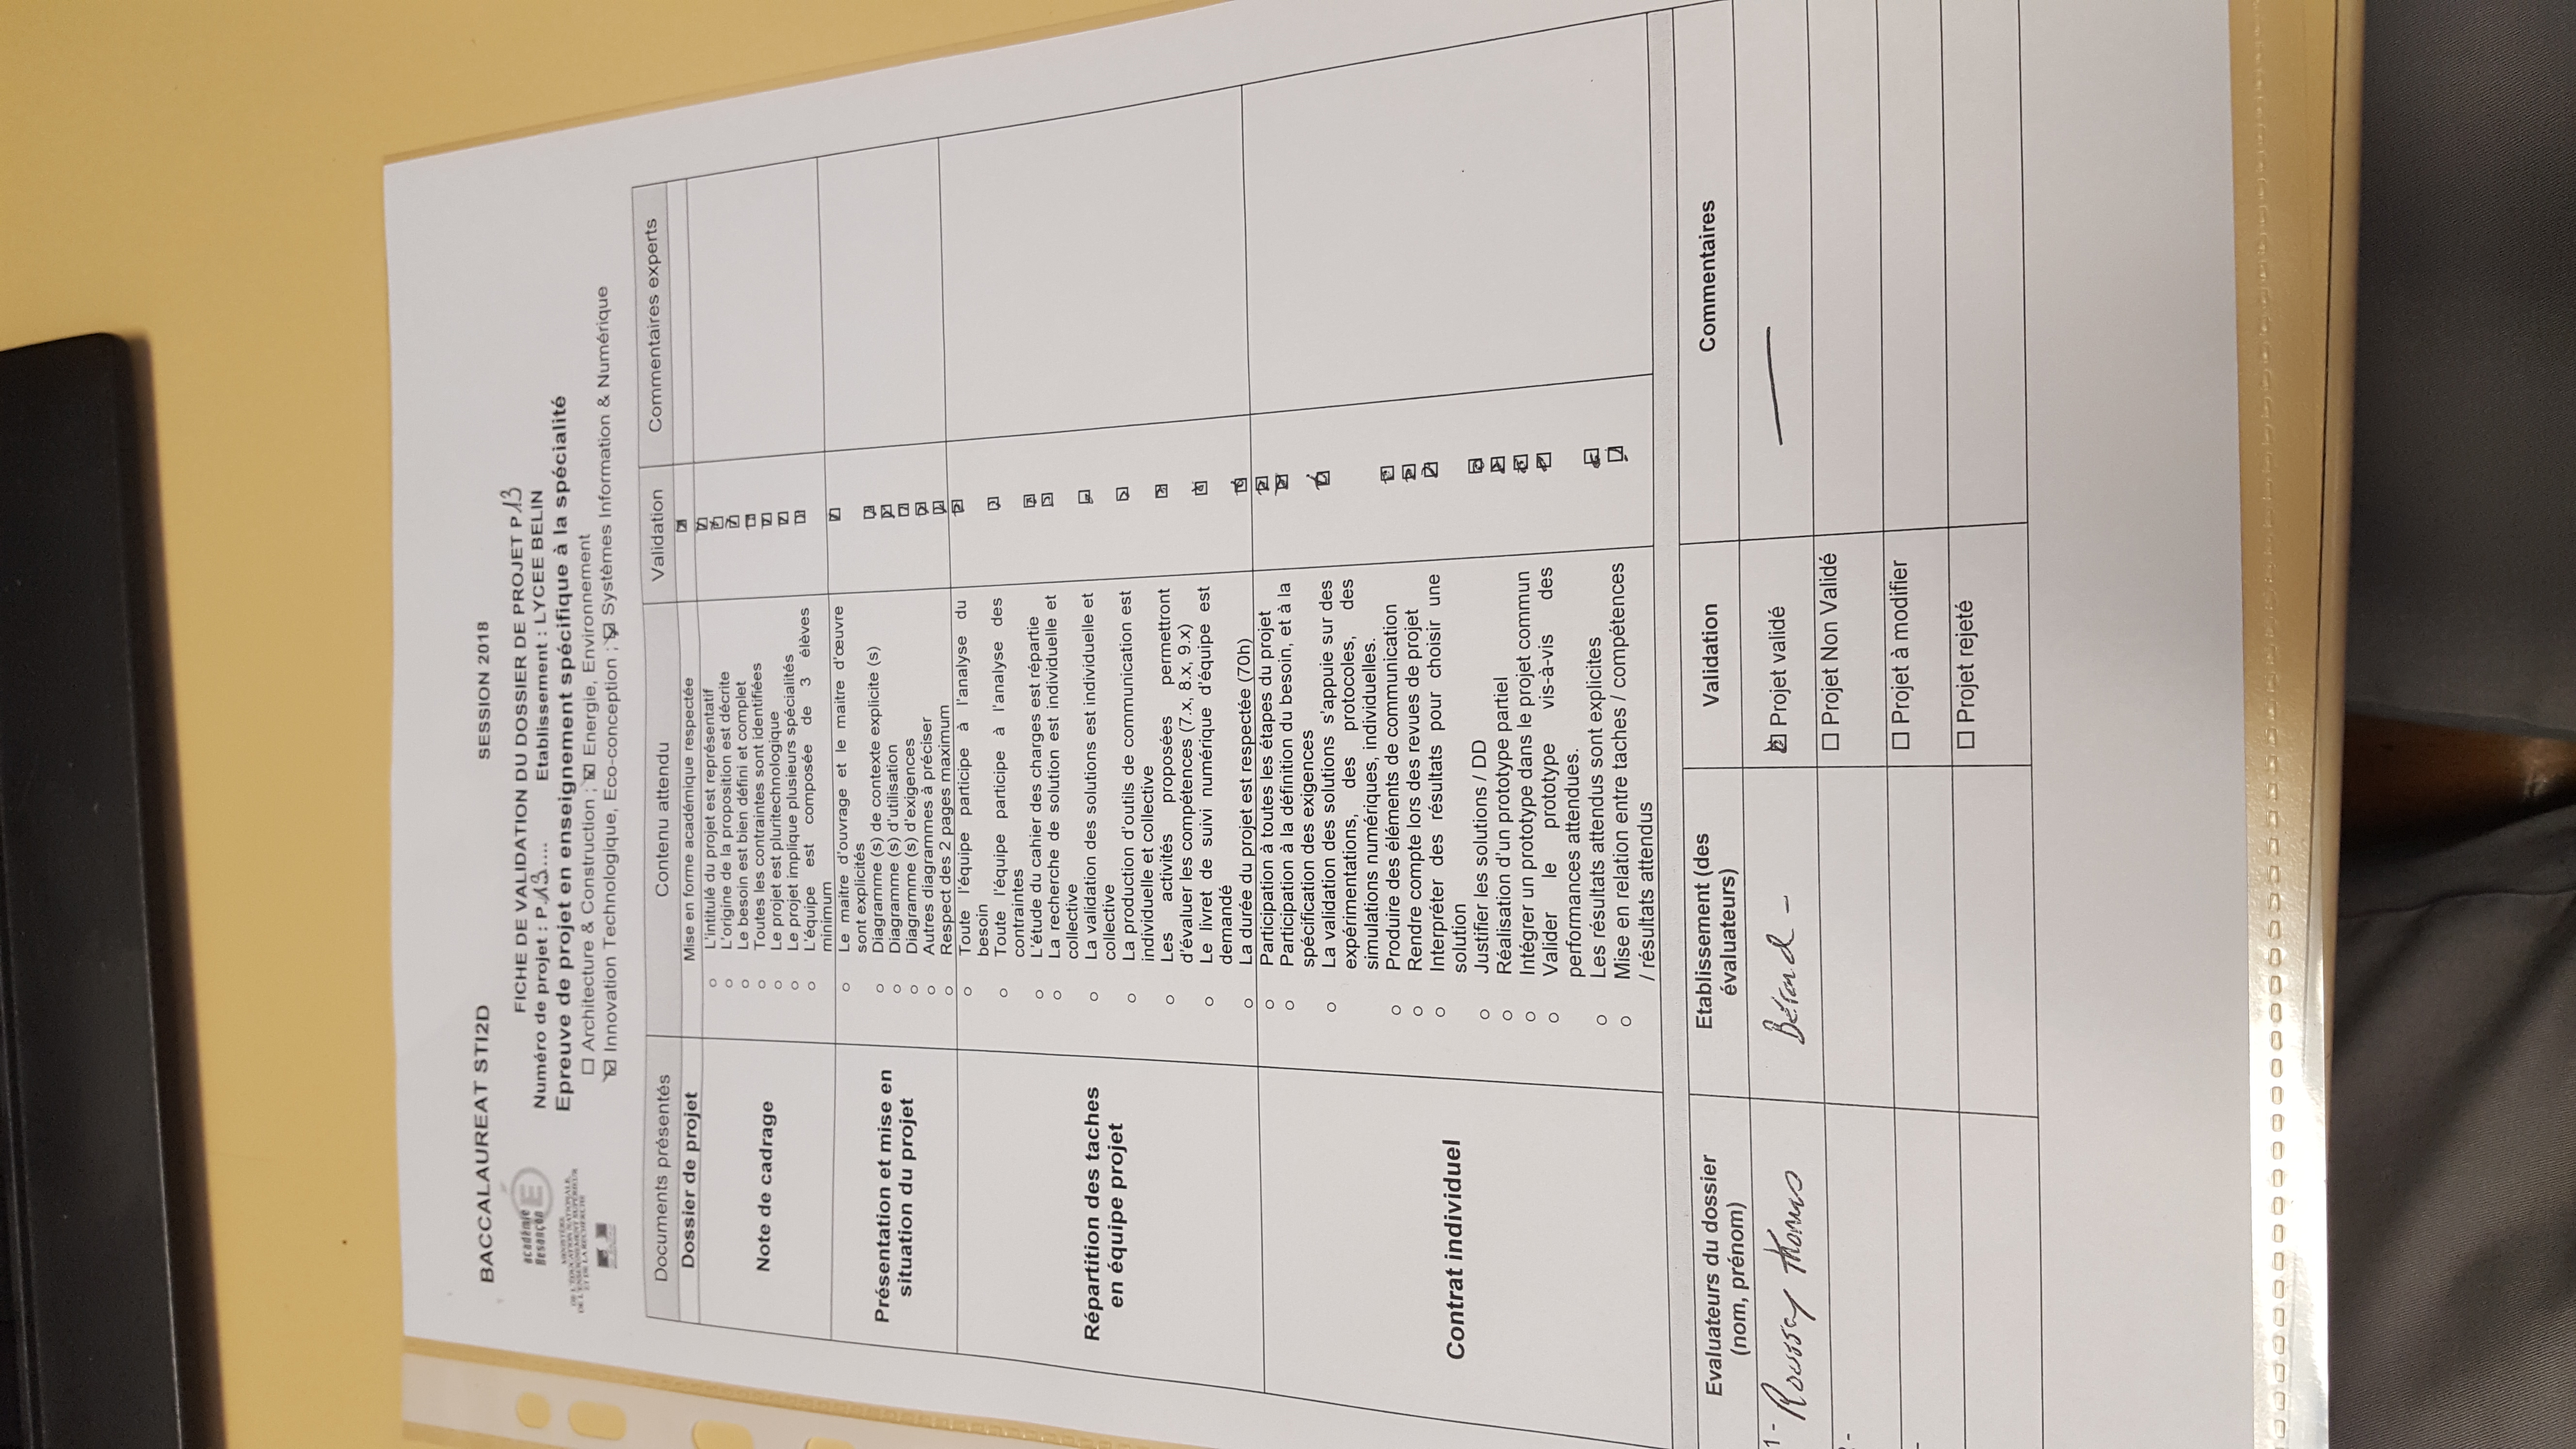 BACCALAUREAT STI2D SESSION 2018
académie
Besançon
MINISTÈRE
DE L'ÉDUCATION NATIONALE,
DE L'ENSEIGNEMENT SUPÉRIEUR
ET DE LA RECHERCHE
FICHE DE VALIDATION DU DOSSIER DE PROJET P13
Numéro de projet : P.13.... Etablissement : LYCEE BELIN
Epreuve de projet en enseignement spécifique à la spécialité
☐ Architecture & Construction ; ☒ Energie, Environnement
☒ Innovation Technologique, Eco-conception ; ☒ Systèmes Information & Numérique
Documents présentés Contenu attendu Validation Commentaires experts
Dossier de projet Mise en forme académique respectée
Note de cadrage
o L'intitulé du projet est représentatif
o L'origine de la proposition est décrite
o Le besoin est bien défini et complet
o Toutes les contraintes sont identifiées
o Le projet est pluritechnologique
o Le projet implique plusieurs spécialités
o L'équipe est composée de 3 élèves
minimum
Présentation et mise en
situation du projet
o Le maitre d'ouvrage et le maitre d'œuvre
sont explicités
o Diagramme (s) de contexte explicite (s)
o Diagramme (s) d'utilisation
o Diagramme (s) d'exigences
o Autres diagrammes à préciser
o Respect des 2 pages maximum
Répartition des taches
en équipe projet
o Toute l'équipe participe à l'analyse du
besoin
o Toute l'équipe participe à l'analyse des
contraintes
o L'étude du cahier des charges est répartie
o La recherche de solution est individuelle et
collective
o La validation des solutions est individuelle et
collective
o La production d'outils de communication est
individuelle et collective
o Les activités proposées permettront
d'évaluer les compétences (7.x, 8.x, 9.x)
o Le livret de suivi numérique d'équipe est
demandé
o La durée du projet est respectée (70h)
Contrat individuel
o Participation à toutes les étapes du projet
o Participation à la définition du besoin, et à la
spécification des exigences
o La validation des solutions s'appuie sur des
expérimentations, des protocoles, des
simulations numériques, individuelles.
o Produire des éléments de communication
o Rendre compte lors des revues de projet
o Interpréter des résultats pour choisir une
solution
o Justifier les solutions / DD
o Réalisation d'un prototype partiel
o Intégrer un prototype dans le projet commun
o Valider le prototype vis-à-vis des
performances attendues.
o Les résultats attendus sont explicites
o Mise en relation entre taches / compétences
/ résultats attendus
Evaluateurs du dossier
(nom, prénom)
Etablissement (des
évaluateurs)
Validation
Commentaires
1 - Roussey Thomas Bérard - ☒ Projet validé —
- ☐ Projet Non Validé
- ☐ Projet à modifier
☐ Projet rejeté